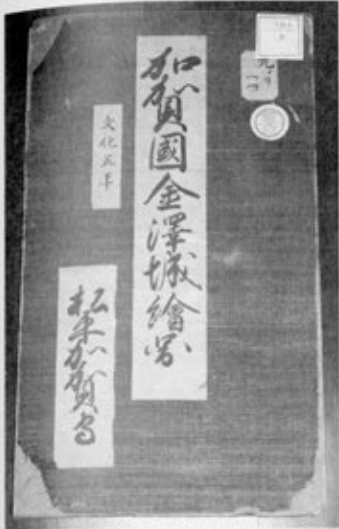 加賀國金澤城繪圖
文化五年
松平加賀守